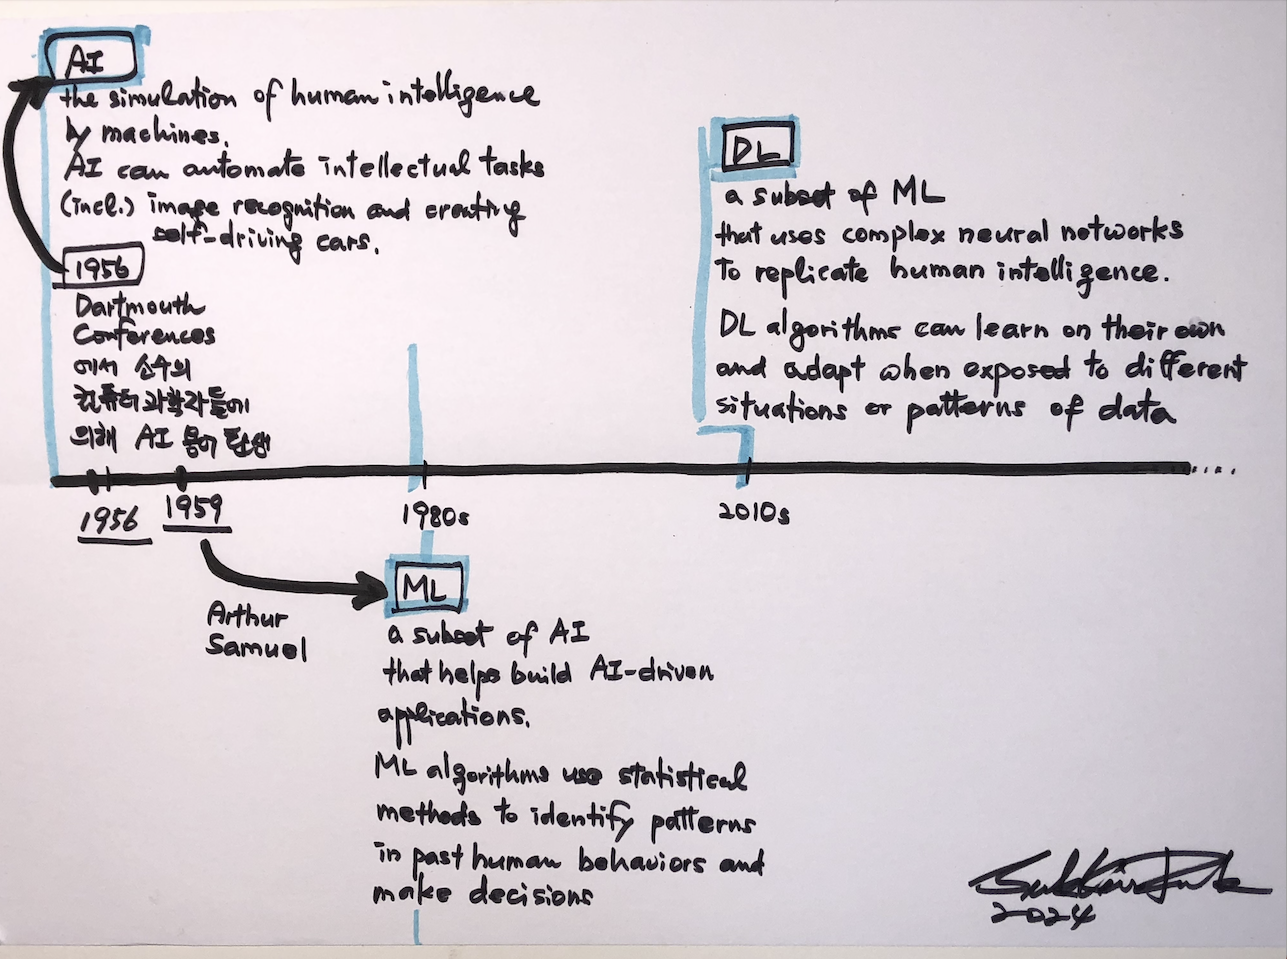 AI
the simulation of human intelligence
by machines.
AI can automate intellectual tasks
(incl.) image recognition and creating
self-driving cars.
1956
Dartmouth
Conferences
에서 소수의
컴퓨터과학자들에
의해 AI 용어 탄생
DL
a subset of ML
that uses complex neural networks
to replicate human intelligence.
DL algorithms can learn on their own
and adapt when exposed to different
situations or patterns of data
1956
1959
1980s
2010s
Arthur
Samuel
ML
a subset of AI
that helps build AI-driven
applications.
ML algorithms use statistical
methods to identify patterns
in past human behaviors and
make decisions
2024